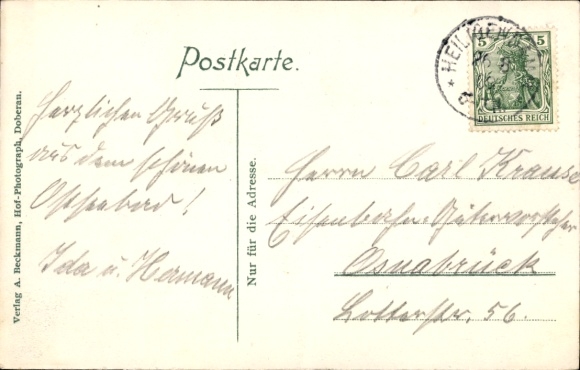 Postkarte.
Herzlichen Gruß
aus dem schönen
Ostseebad!
Ida u. Hermann
Nur für die Adresse.
Verlag A. Beckmann, Hof-Photograph, Doberan.
5 5
DEUTSCHES REICH
Herrn Carl Krause
Eisenbahn-Gütervorsteher
Osnabrück
Lotterstr. 56.